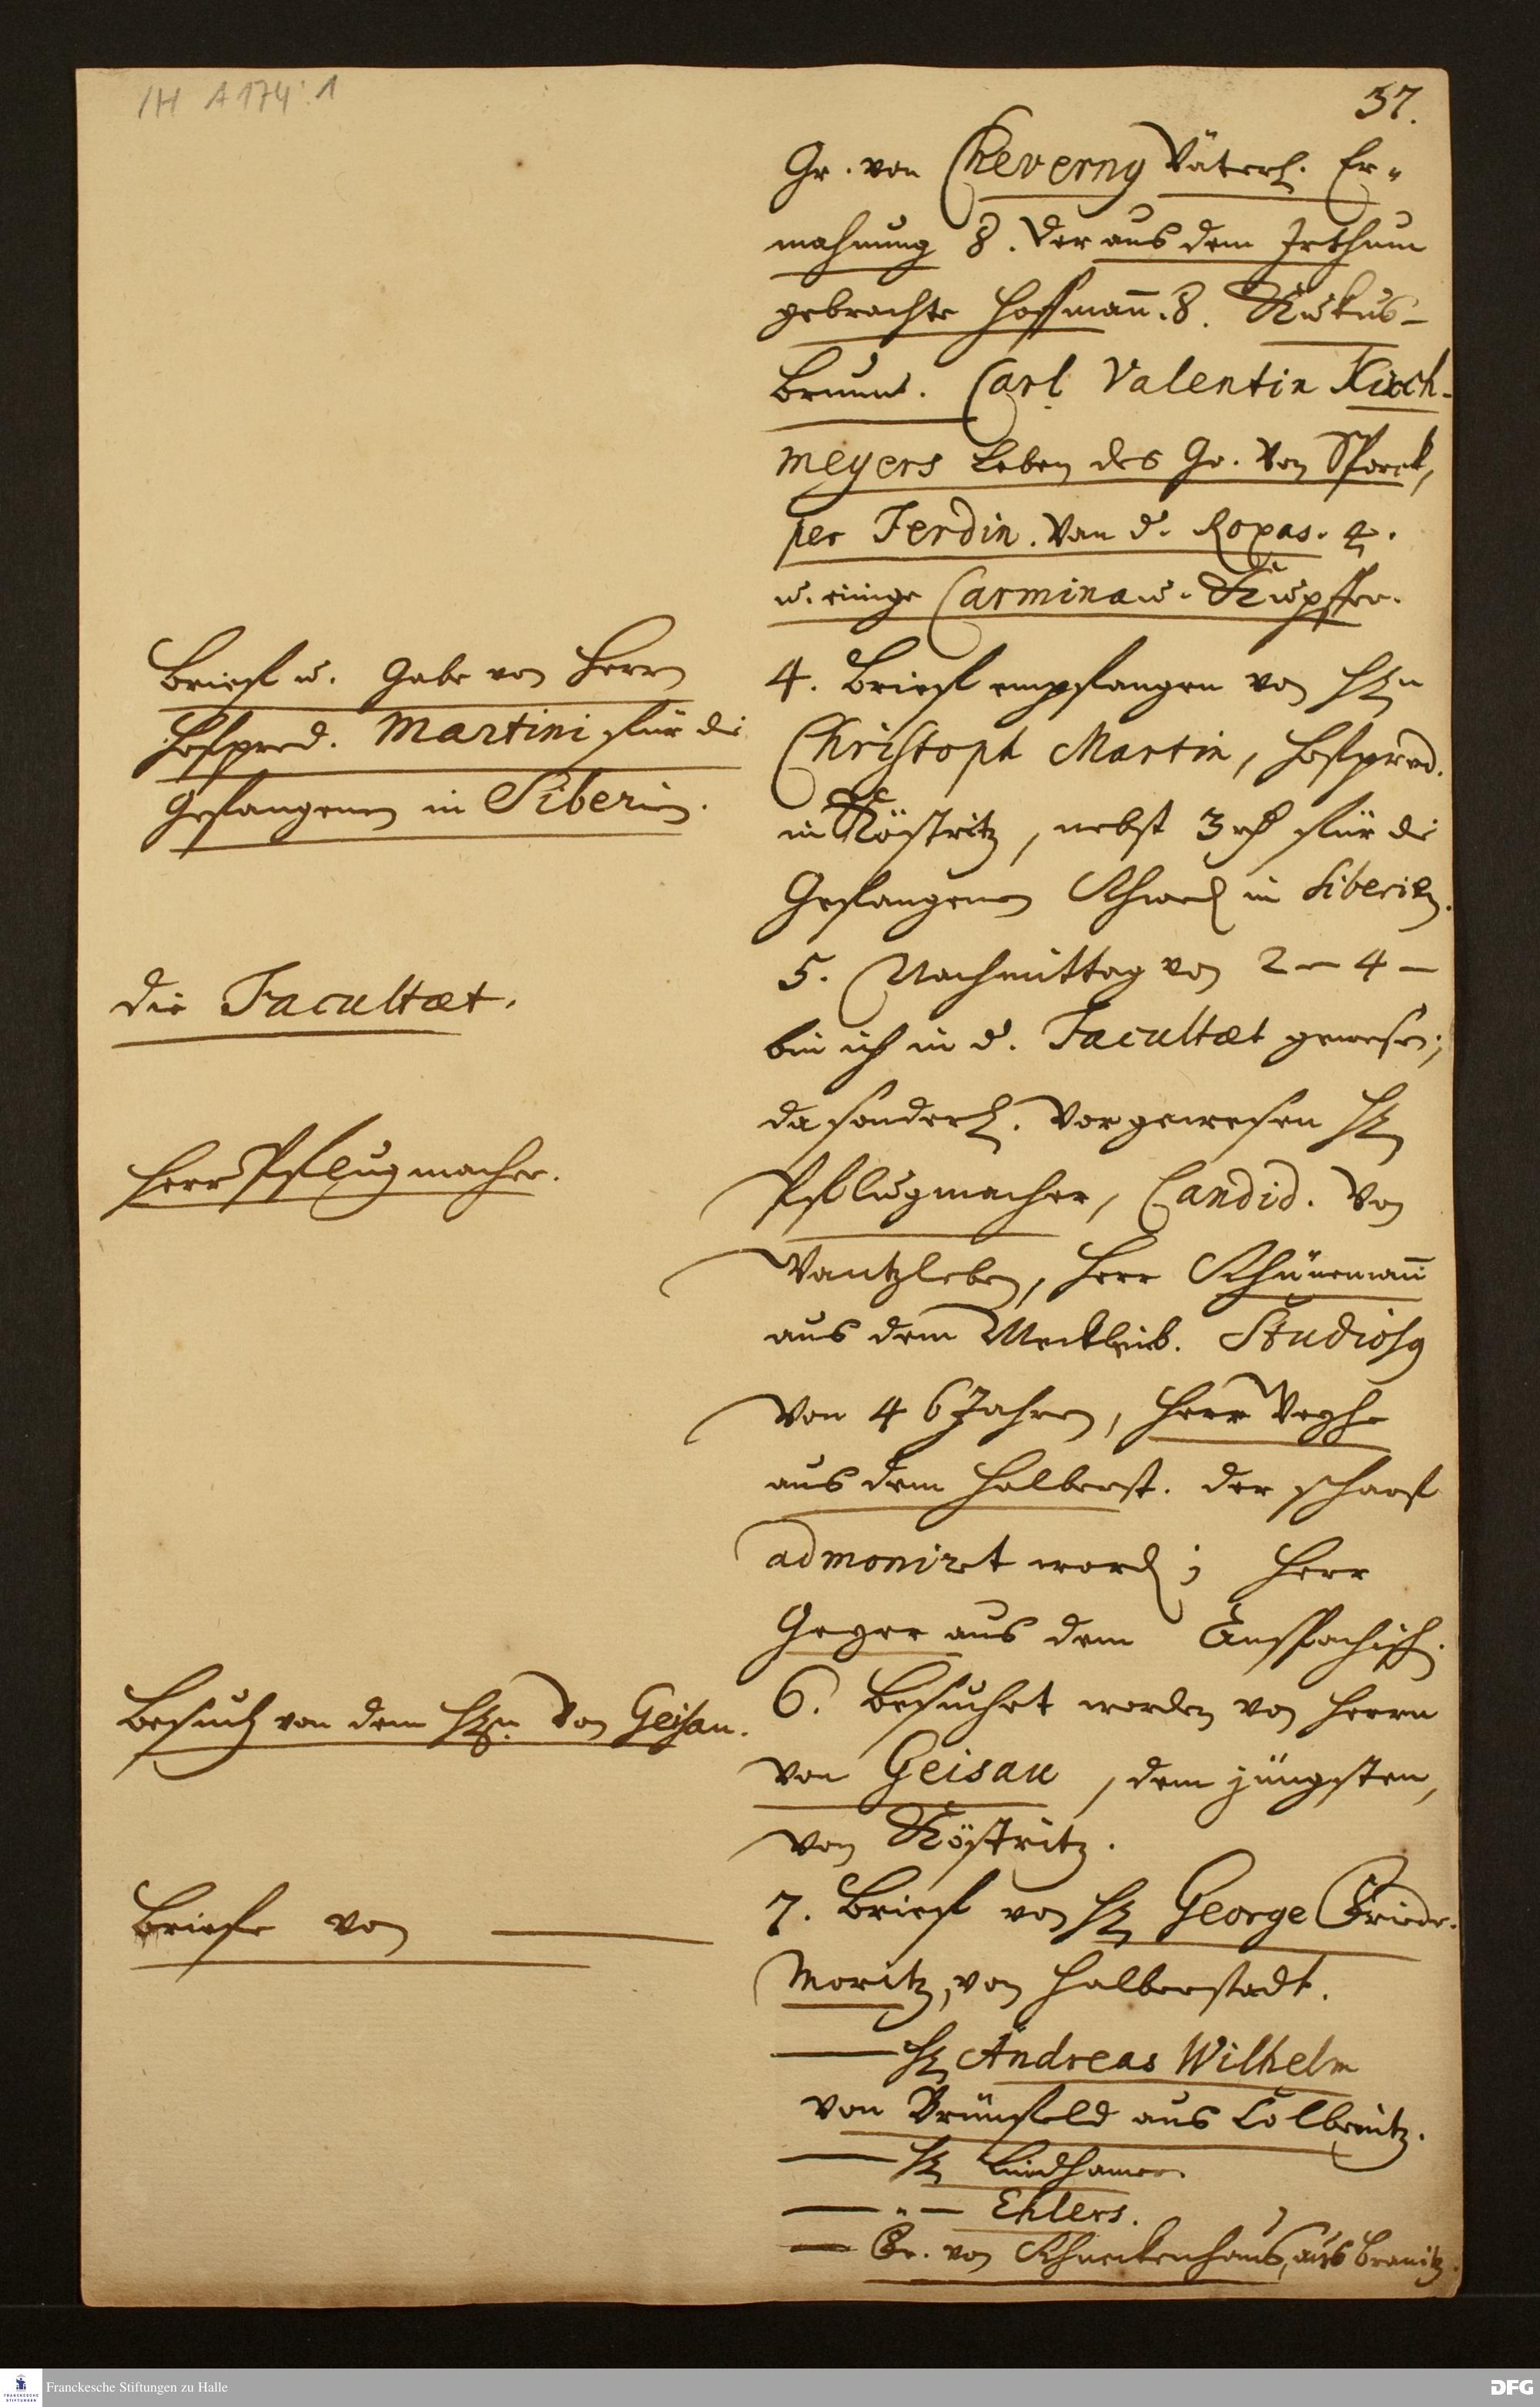 1H A 174:1
37.
Gr. von Cheverny Väterl. Er-
mahnung 8. der aus dem Irthum
gebrachte Hoffmañ. 8. Kukus-
Brunn. Carl Valentin Kirch-
meyers Leben des Gr. von Sporck,
per Ferdin. Van d. Roxas. 4.
u. einige Carmina u. Kupffer.
Brieff u. Gabe von Herrn
Hofpred. Martini für die
Gefangenen in Siberien.
4. Brieff empfangen von H.n
Christoph Martin, Hofpred.
in Köstritz, nebst 3 rthl für die
Gefangenen Schwed in Siberien.
die Facultæt.
5. Nachmittag von 2 – 4 –
bin ich in d. Facultæt gewesen;
da sonderl. vorgewesen H.
Herr Pflugmacher.
Pflugmacher, Candid. von
Vantzleben, Herr Schünemañ
aus dem Mecklenb. Studiosus
von 46 Jahren, Herr
aus dem Halberst. der scharf
admoniret word; Herr
Geyer aus dem Anspachisch.
Besuch von dem H.n von Geisau.
6. Besuchet worden von Herrn
von Geisau, dem jüngsten,
von Köstritz.
Briefe von —
7. Brieff von H. George Friedr.
Moritz, von Halberstadt.
— H. Andreas Wilhelm
von Brünfeld aus Cölbnitz.
— H. Lindhamer.
— " — Ehlers.
— Gr. von Schneckenhaus, aus Branitz.
Franckesche Stiftungen zu Halle
FRANCKESCHE
STIFTUNGEN
DFG